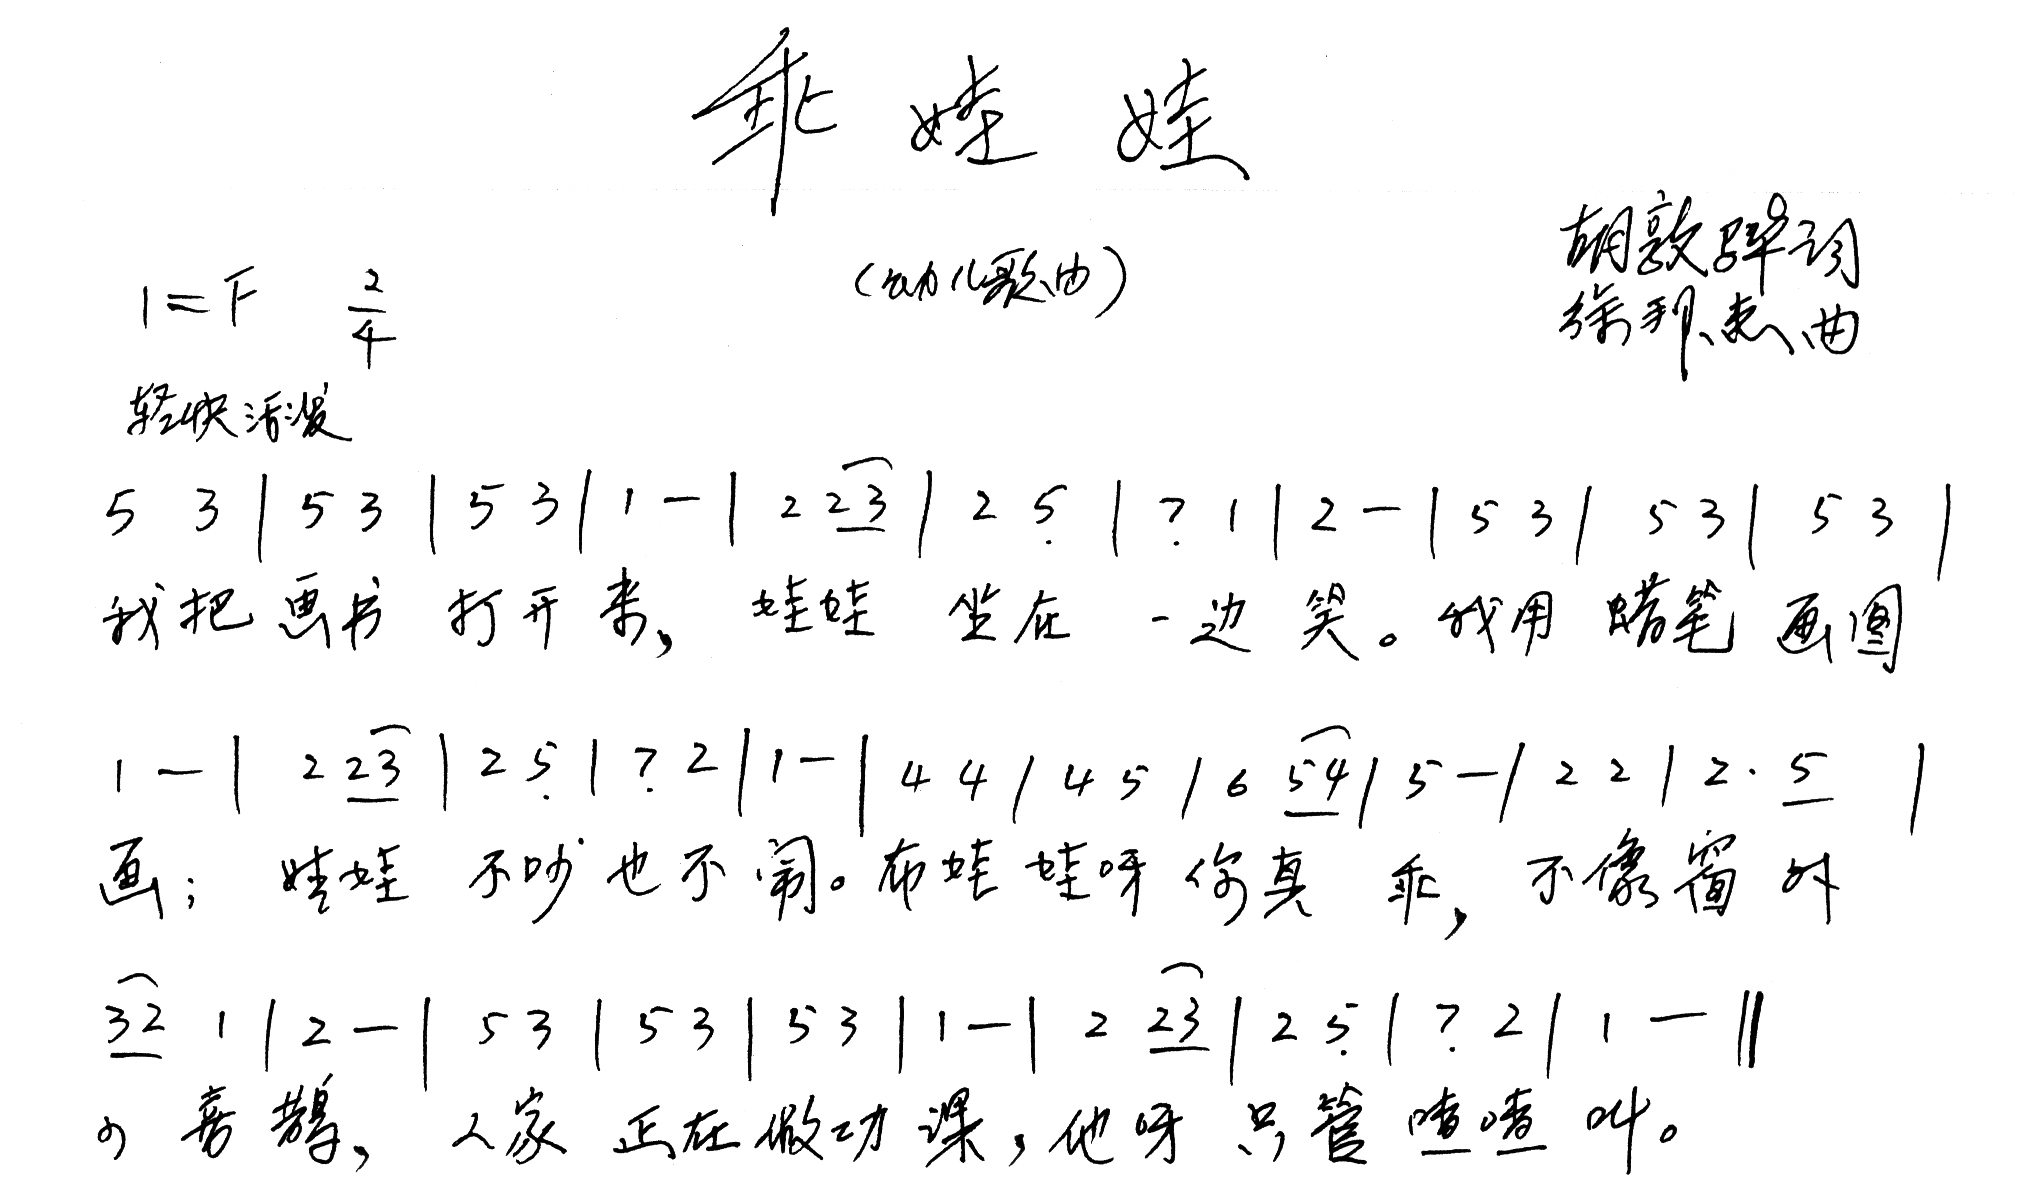 乖娃娃
(幼儿歌曲)
胡敦骅词
1=F 2/4
徐邦杰曲
轻快活泼
5 3 | 5 3 | 5 3 | 1 — | 2 2 3 | 2 5̣ | 7̣ 1 | 2 — | 5 3 | 5 3 | 5 3 |
我把画书打开来,娃娃坐在一边笑。我用蜡笔画图
1 — | 2 2 3 | 2 5̣ | 7̣ 2 | 1 — | 4 4 | 4 5 | 6 5 4 | 5 — | 2 2 | 2 · 5 |
画;娃娃不吵也不闹。布娃娃呀你真乖,不像窗外
3 2 1 | 2 — | 5 3 | 5 3 | 5 3 | 1 — | 2 2 3 | 2 5̣ | 7̣ 2 | 1 — ‖
的喜鹊,人家正在做功课,他呀只管喳喳叫。